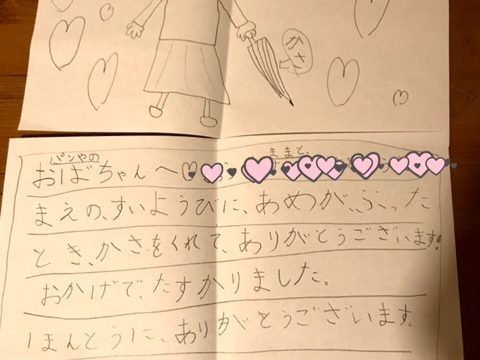 かさ
パンやの
おばちゃんへ
ままと、
まえの、すいようびに、あめが、ふった
とき、かさをくれて、ありがとうございます!
おかげで、たすかりました。
ほんとうに、ありがとうございます。